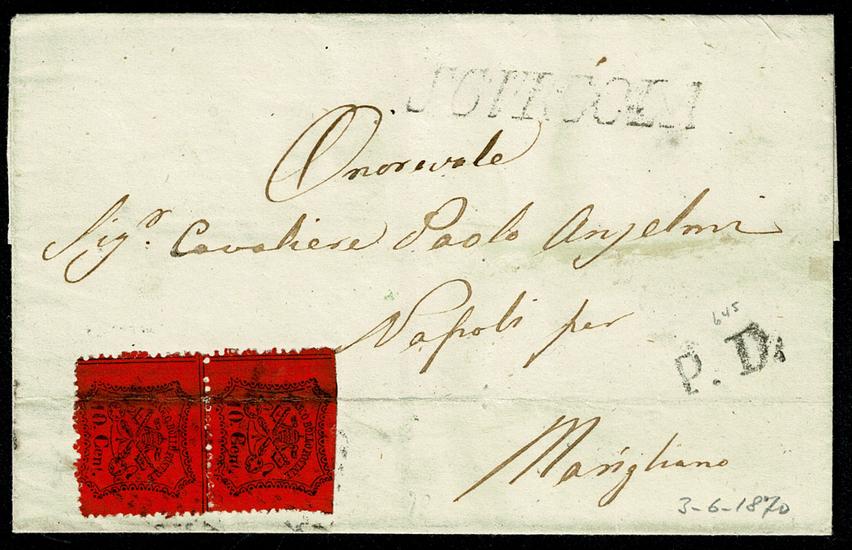 Onorevole
Sig.r Cavaliere Paolo Anselmi
Napoli per
645
P. D.
Marigliano
3-6-1870
10 Cent.
10 Cent.